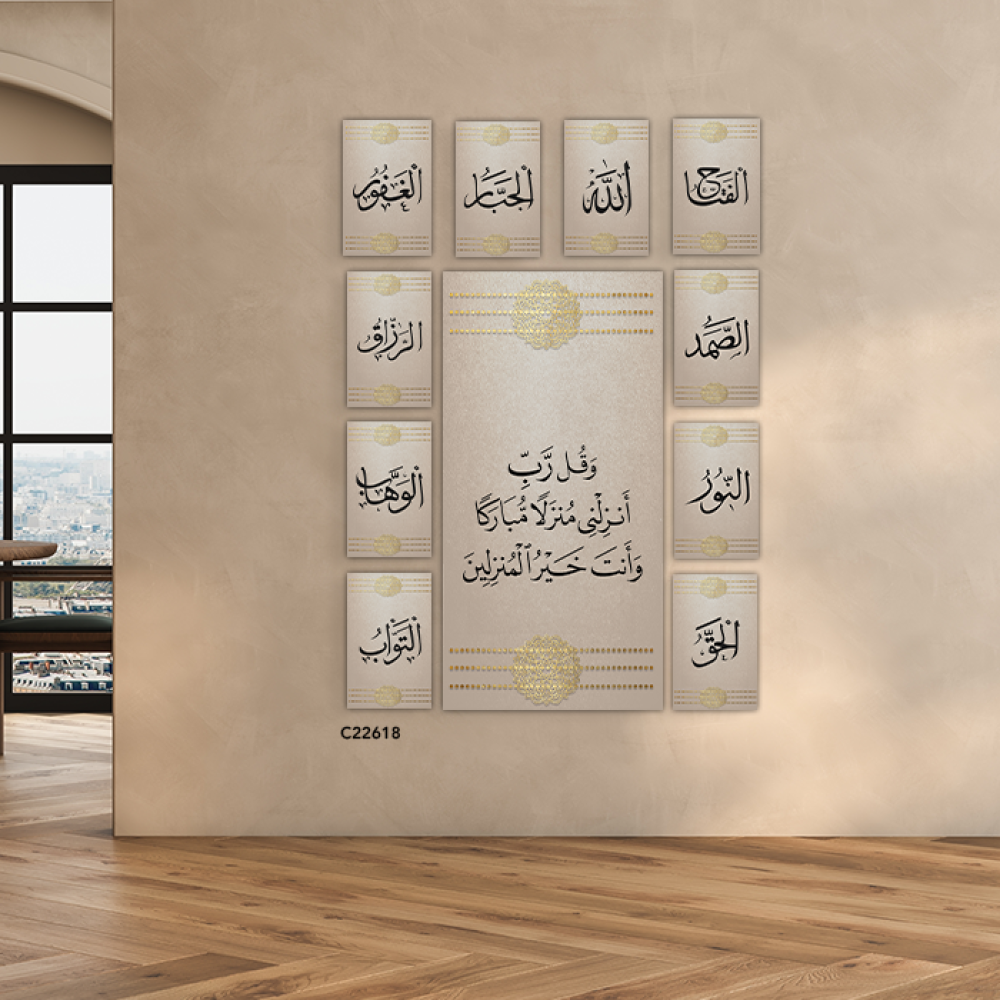 الْفَتَّاح
اللَّه
الْجَبَّار
الْغَفُورُ
الصَّمَد
الرَّزَّاق
وَقُل رَّبِّ
أَنزِلْنِي مُنزَلًا مُّبَارَكًا
وَأَنتَ خَيْرُ الْمُنزِلِينَ
النُّورُ
الْوَهَّاب
الْحَقّ
التَّوَّابُ
C22618